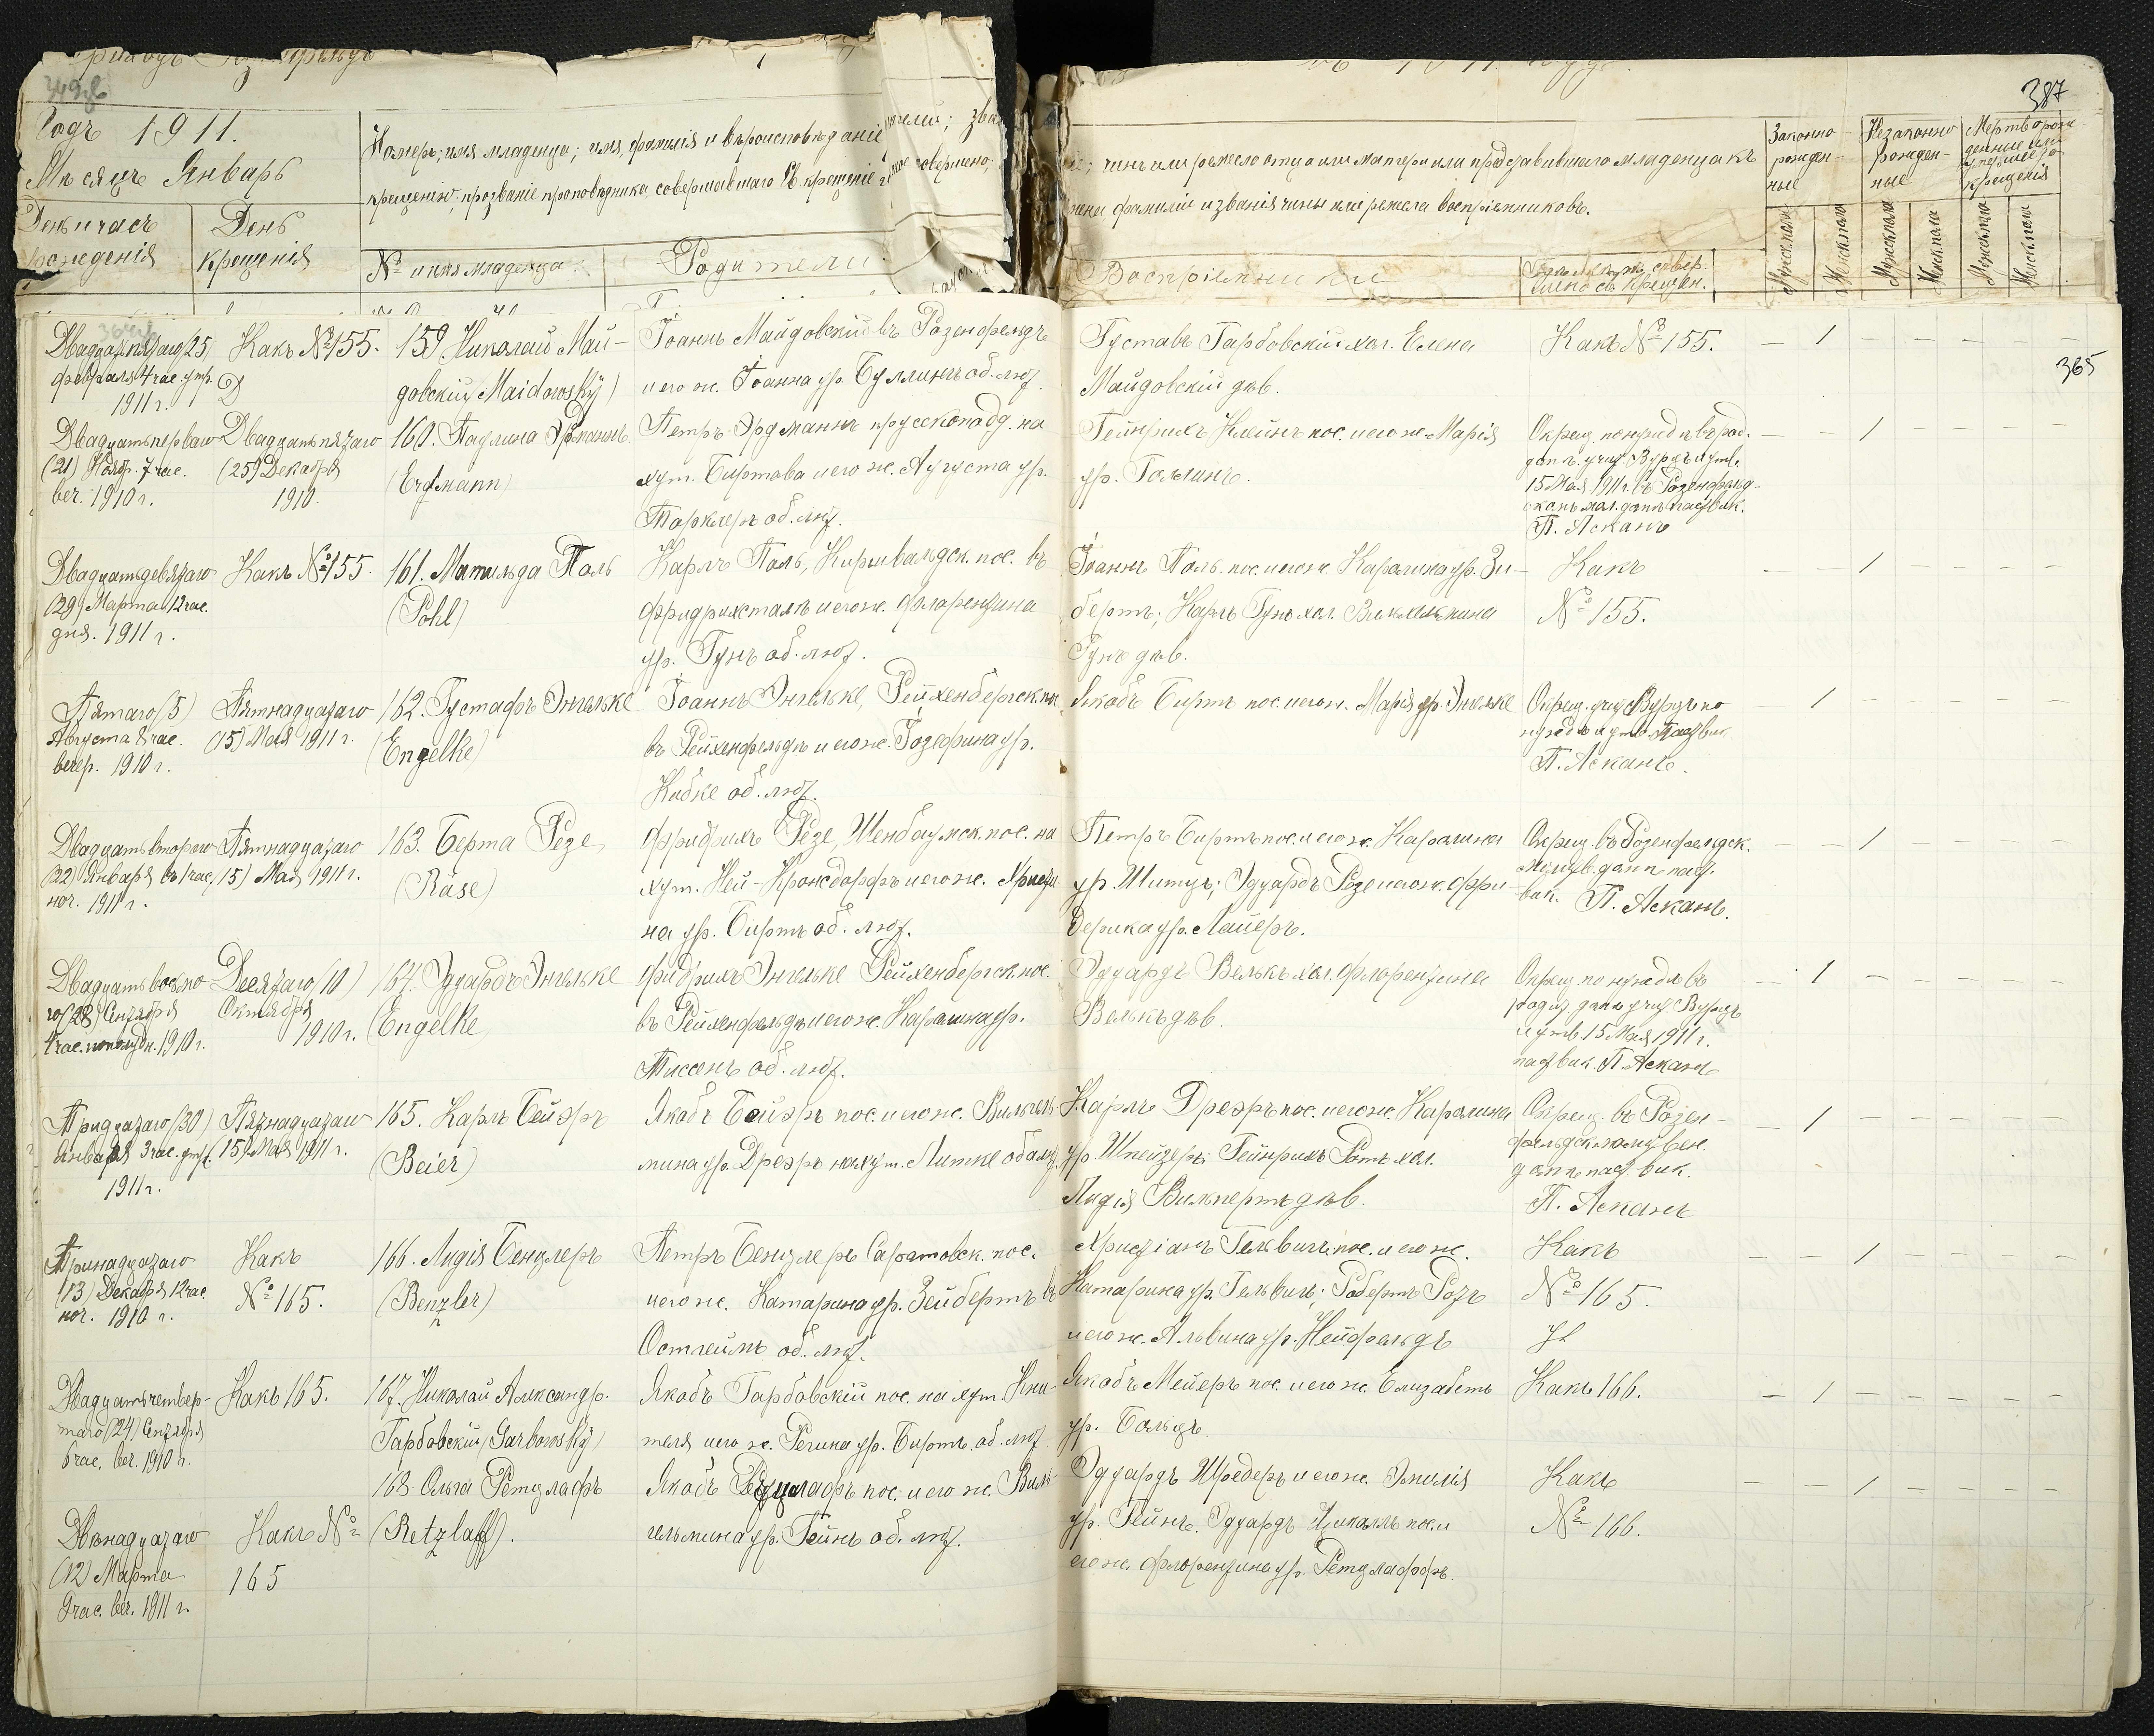 387
Годъ 1911.
Мѣсяцъ Январь
День и часъ
рожденія
День
крещенія
Номеръ; имя младенца; имя, фамилія и вѣроисповѣданіе
крещенію; прозваніе проповѣдника, совершавшаго Св. крещеніе
совершено;
№ и имя младенца.
Родители.
чинъ или ремесло отца или матери или представившаго младенца къ
фамиліи и званія чины или ремесла воспріемниковъ.
Воспріемники
Законно-
рожден-
ные
Незаконно
рожден-
ные
Мертворож
денные или
крещенія
Мужск. пола
Женск. пола
Мужск. пола
Женск. пола
Мужск. пола
Женск. пола
365
Двадцатьпятаго (25)
февраля 4 час. утр.
1911 г.
Какъ № 155.
159 Николай Май-
довскій (Maidowsky)
Іоаннъ Майдовскій въ Розенфельдъ
и его ж. Іоанна ур. Буллингъ об. лют.
Густавъ Гарбовскій хол. Елена
Майдовскій дѣв.
Какъ № 155.
Двадцатьперваго
(21) Нояб. 7 час.
веч. 1910 г.
Двадцатьпятаго
(25) Декабря
1910.
160. Паулина Эрдманнъ
(Erdmann)
Петръ Эрдманнъ прусскоподд. на
хут. Биртова и его ж. Аугуста ур.
об. лют.
Гейнрихъ Клейнъ пос. и его ж. Марія
ур.
Окрещ. по нуждѣ въ род.
15 Мая 1911 г. въ Розенфельд-
П. Асканъ
Двадцатьдевятаго
(29) Марта 12 час.
дня. 1911 г.
Какъ № 155.
161. Матильда Поль
(Pohl)
Карлъ Поль, Киршвальдск. пос. въ
Фридрихсталь и его ж. Флорентина
ур. Гунъ об. лют.
Іоаннъ Поль. пос. и его ж. Каролина ур. Зи-
бертъ; Карлъ Гунъ хол. Вильгельмина
Гунъ дѣв.
Какъ
№ 155.
Пятаго (5)
Августа 8 час.
вечер. 1910 г.
Пятнадцатаго
(15) Мая 1911 г.
162. Густафъ Энгельке
(Engelke)
Іоаннъ Энгельке, Рейхенбергск. пос.
въ Рейхенфельдѣ и его ж. Іозефина ур.
Кибке об. лют.
Якобъ Биртъ пос. и его ж. Марія ур. Энгельке
П. Асканъ.
Двадцатьвтораго
(22) Января въ 1 час.
ноч. 1911 г.
Пятнадцатаго
(15) Мая 1911 г.
163. Берта Резе
(Räse)
Фридрихъ Резе, Шенбаумск. пос. на
хут. Ней-Кронсдорфъ и его ж. Христи
на ур. Биртъ об. лют.
Петръ Биртъ пос. и его ж. Каролина
ур. Шитцъ; Эдуардъ Резе и его ж. Фри-
дерика ур. Лайеръ.
Окрещ. въ Розенфельдск.
вик. П. Асканъ.
Двадцатьвосьмо
го (28) Сентября
4 час. пополудн. 1910 г.
Десятаго (10)
Октября
1910 г.
164. Эдуардъ Энгельке
(Engelke
Фридрихъ Энгельке Рейхенбергск. пос.
въ Рейхенфельдѣ и его ж. Каролина ур.
Тиссенъ об. лют.
Эдуардъ Велькъ хол. Флорентина
Велькъ дѣв.
Окрещ. по нуждѣ въ
и утв. 15 Мая 1911 г.
паст. вик. П. Асканъ
Тридцатаго (30)
Января 3 час. утр.
1911 г.
Пятнадцатаго
(15) Мая 1911 г.
165. Карлъ Бейэръ
(Beier)
Якобъ Бейэръ пос. и его ж. Вильгель-
мина ур. Дреэръ на хут. Литке об. лют.
Карлъ Дреэръ пос. и его ж. Каролина
ур. Шнейдеръ; Гейнрихъ Ротъ хол.
Лидія Вильпертъ дѣв.
Окрещ. въ Розен-
паст. вик.
П. Асканъ
Тринадцатаго
(13) Декабря 12 час.
ноч. 1910 г.
Какъ
№ 165.
166. Лидія Бенцлеръ
(Benzler)
Петръ Бенцлеръ Саратовск. пос.
и его ж. Катарина ур. Зейбертъ въ
Остгеймъ об. лют.
Христіанъ Гельвихъ пос. и его ж.
Катарина ур. Гельвихъ; Робертъ Ротъ
и его ж. Альвина ур. Нейфельдъ
Какъ
№ 165.
Двадцатьчетвер-
таго (24) Сентября
6 час. веч. 1910 г.
Какъ 165.
167. Николай Александр.
Гарбовскій (Garbowsky)
Якобъ Гарбовскій пос. на хут. Кни-
теля и его ж. Регина ур. Биртъ. об. лют
Якобъ Мейеръ пос. и его ж. Елизабетъ
ур. Больдъ.
Какъ 166.
Двѣнадцатаго
(12) Марта
9 час. веч. 1911 г.
Какъ №
165
168. Ольга Ретцлафъ
(Retzlaff).
Якобъ Ретцлафъ пос. и его ж. Виль-
гельмина ур. Гейнъ об. лют.
Эдуардъ Шредеръ и его ж. Эмилія
ур. Гейнъ. Эдуардъ пос. и
его ж. Флорентина ур. Ретцлаффъ.
Какъ
№ 166.